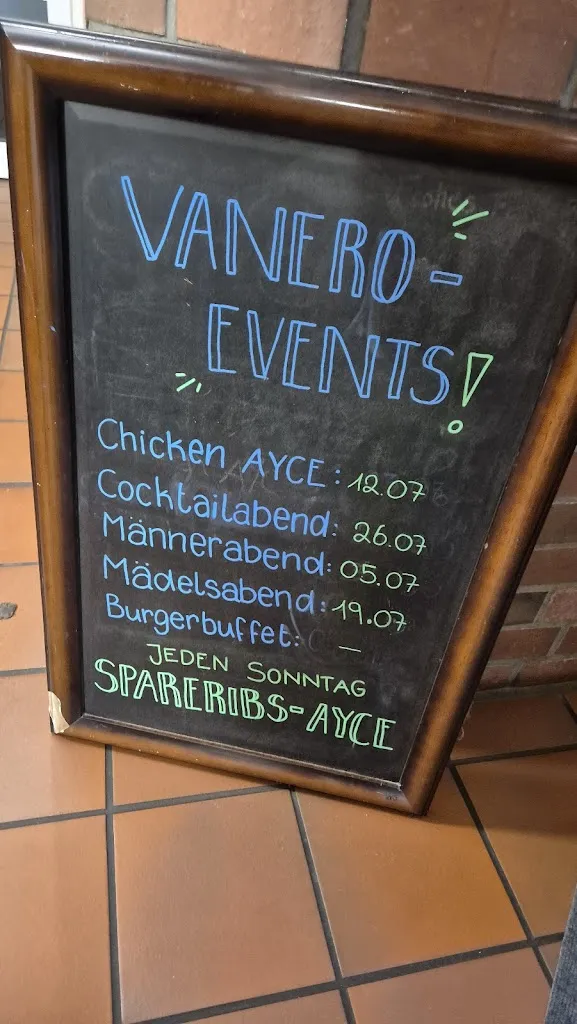 VANERO-
EVENTS!
Chicken AYCE: 12.07
Cocktailabend: 26.07
Männerabend: 05.07
Mädelsabend: 19.07
Burgerbuffet: —
JEDEN SONNTAG
SPARERIBS-AYCE